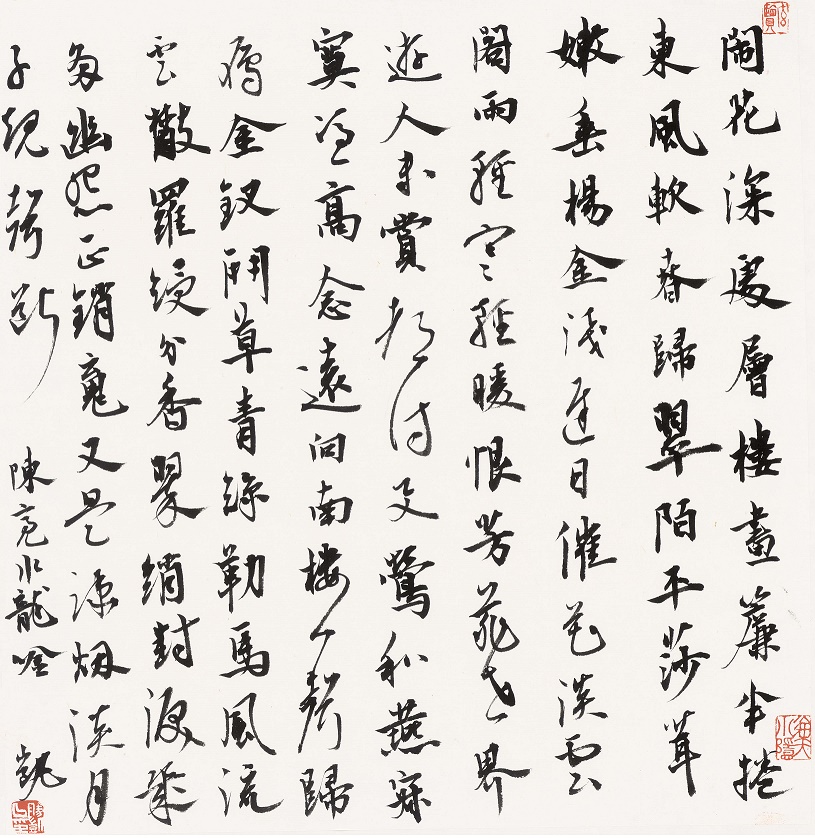 鬧花深處層樓畫簾半捲
東風軟春歸翠陌平莎茸
嫩垂楊金淺遲日催花淡雲
閣雨輕寒輕暖恨芳菲世界
遊人未賞都付與鶯和燕寂
寞憑高念遠向南樓一聲歸
鴈金釵鬥草青絲勒馬風流
雲散羅綬分香翠綃封淚幾
多幽怨正銷魂又是疎煙淡月
子規聲斷 陳亮水龍吟 凱